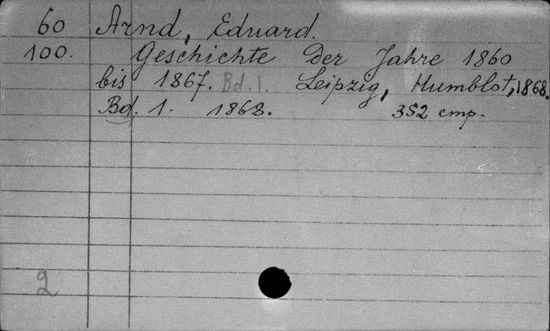 60 Arnd, Eduard.
100. Geschichte der Jahre 1860
bis 1867. Bd. 1. Leipzig, Humblot, 1868.
Bd. 1. 1868. 352 стр.
2